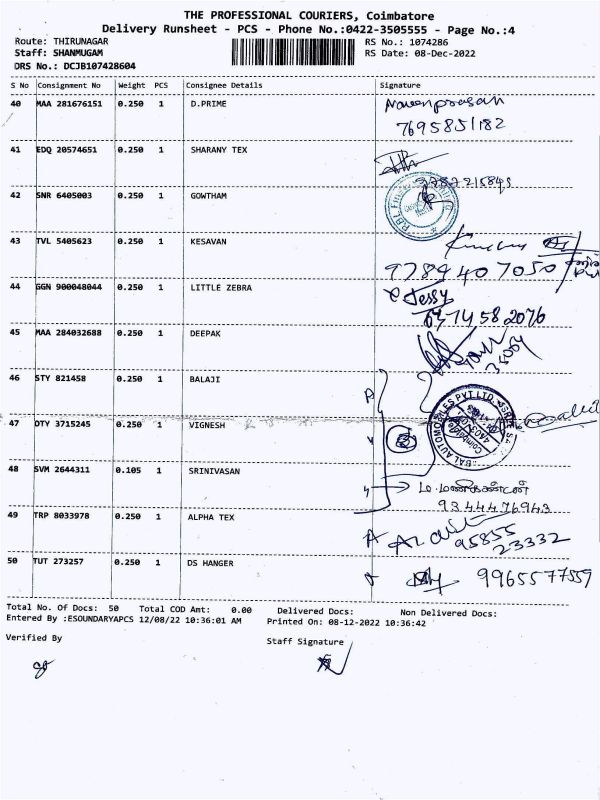 THE PROFESSIONAL COURIERS, Coimbatore
Delivery Runsheet - PCS - Phone No.:0422-3505555 - Page No.:4
Route: THIRUNAGAR RS No.: 1074286
Staff: SHANMUGAM RS Date: 08-Dec-2022
DRS No.: DCJB107428604
S No Consignment No Weight PCS Consignee Details Signature
40 MAA 281676151 0.250 1 D.PRIME Naveenprasan
7695851182
41 EDQ 20574651 0.250 1 SHARANY TEX
42 SNR 6405003 0.250 1 GOWTHAM
43 TVL 5405623 0.250 1 KESAVAN
9789407050
44 GGN 900048044 0.250 1 LITTLE ZEBRA Jessy
45 MAA 284032688 0.250 1 DEEPAK
46 STY 821458 0.250 1 BALAJI
47 OTY 3715245 0.250 1 VIGNESH
48 SVM 2644311 0.105 1 SRINIVASAN
ம. மணிகண்டன்
9344476943
49 TRP 8033978 0.250 1 ALPHA TEX
95855
23332
50 TUT 273257 0.250 1 DS HANGER 9965577559
Total No. Of Docs: 50 Total COD Amt: 0.00 Delivered Docs: Non Delivered Docs:
Entered By :ESOUNDARYAPCS 12/08/22 10:36:01 AM Printed On: 08-12-2022 10:36:42
Verified By Staff Signature